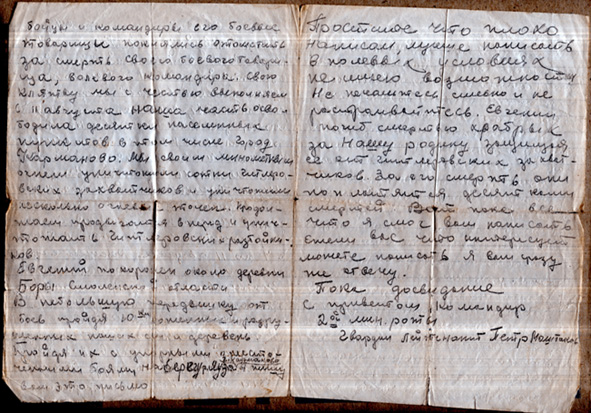 бойцы и командиры его боевые
товарищи поклялись отомстить
за смерть своего боевого товари-
ща, волевого командира. Свою
клятву мы с честью выполняем
с 11 августа наша часть осво-
бодила десятки населенных
пунктов в том числе город
Карманово. Мы своим минометным
огнем уничтожили сотни гитлеро-
вских захватчиков и уничтожили
несколько огневых точек. Продол-
жаем продвигаться в перед и унич-
тожать гитлеровских разбойни-
ков.
Евгений похоронен около деревни
Боры Смоленской области
В небольшую передышку от
боев пройдя 10
сел и деревень
Пройдя их с упорными
боями на пишу
вам это письмо
Простите что плохо
написал, лучше написать
в полевых условиях
не имею возможности
Не печальтесь сильно и не
расстраивайтесь. Евгений
погиб смертью храбрых
за нашу родину защищая
ее от гитлеровских захват-
чиков. За его смерть они
поплатятся десятками
смертей Вот пока все
что я смог вам написать
Если вас что интересует
можете написать я вам сразу
же отвечу.
Пока досведание
С приветом командир
2ой мин. роты
Гвардии Лейтенант Петр